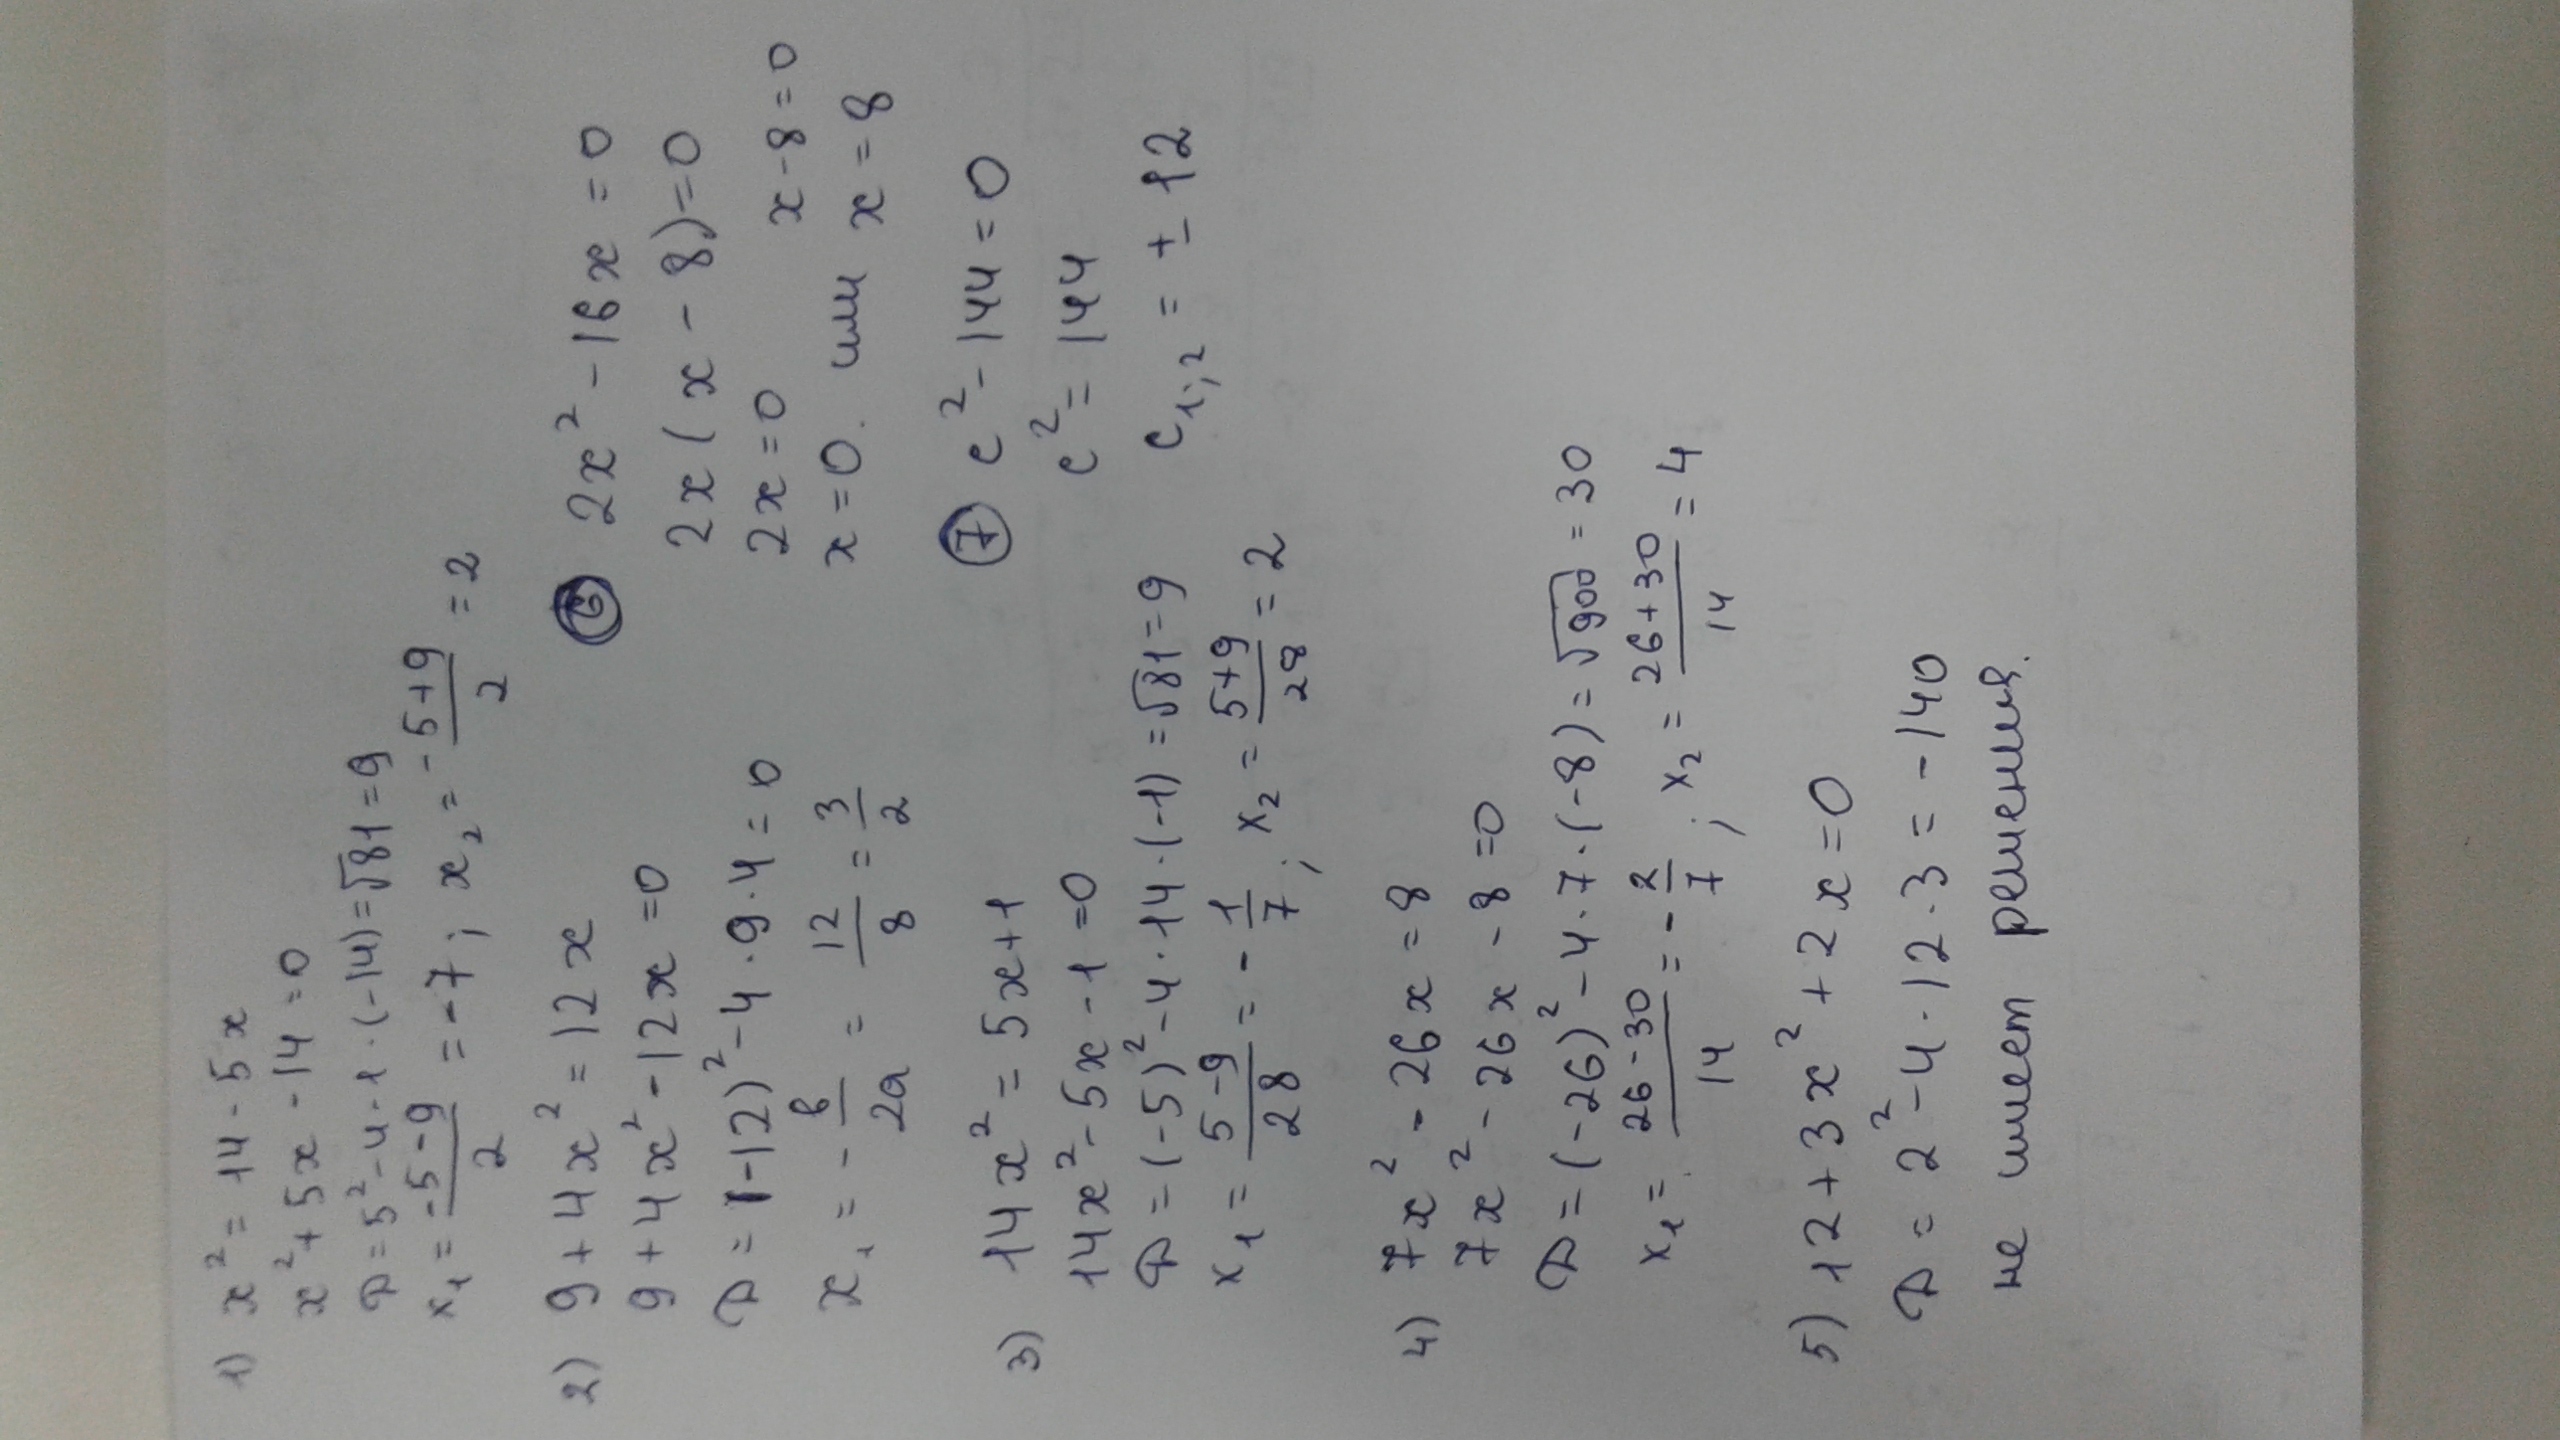 1) x² = 14 - 5x
x² + 5x - 14 = 0
D = 5² - 4·1·(-14) = √81 = 9
x₁ = (-5-9)/2 = -7; x₂ = -(5+9)/2 = 2
2) 9 + 4x² = 12x
9 + 4x² - 12x = 0
D = (-12)² - 4·9·4 = 0
x₁ = -в/2a = 12/8 = 3/2
3) 14x² = 5x+1
14x² - 5x - 1 = 0
D = (-5)² - 4·14·(-1) = √81 = 9
x₁ = (5-9)/28 = -1/7; x₂ = (5+9)/28 = 2
4) 7x² - 26x = 8
7x² - 26x - 8 = 0
D = (-26)² - 4·7·(-8) = √900 = 30
x₁ = (26-30)/14 = -2/7; x₂ = (26+30)/14 = 4
5) 12 + 3x² + 2x = 0
D = 2² - 4·12·3 = -140
не имеет решения.
6 2x² - 16x = 0
2x(x - 8) = 0
2x = 0 x - 8 = 0
x = 0. или x = 8
7 c² - 144 = 0
c² = 144
c₁;₂ = ± 12